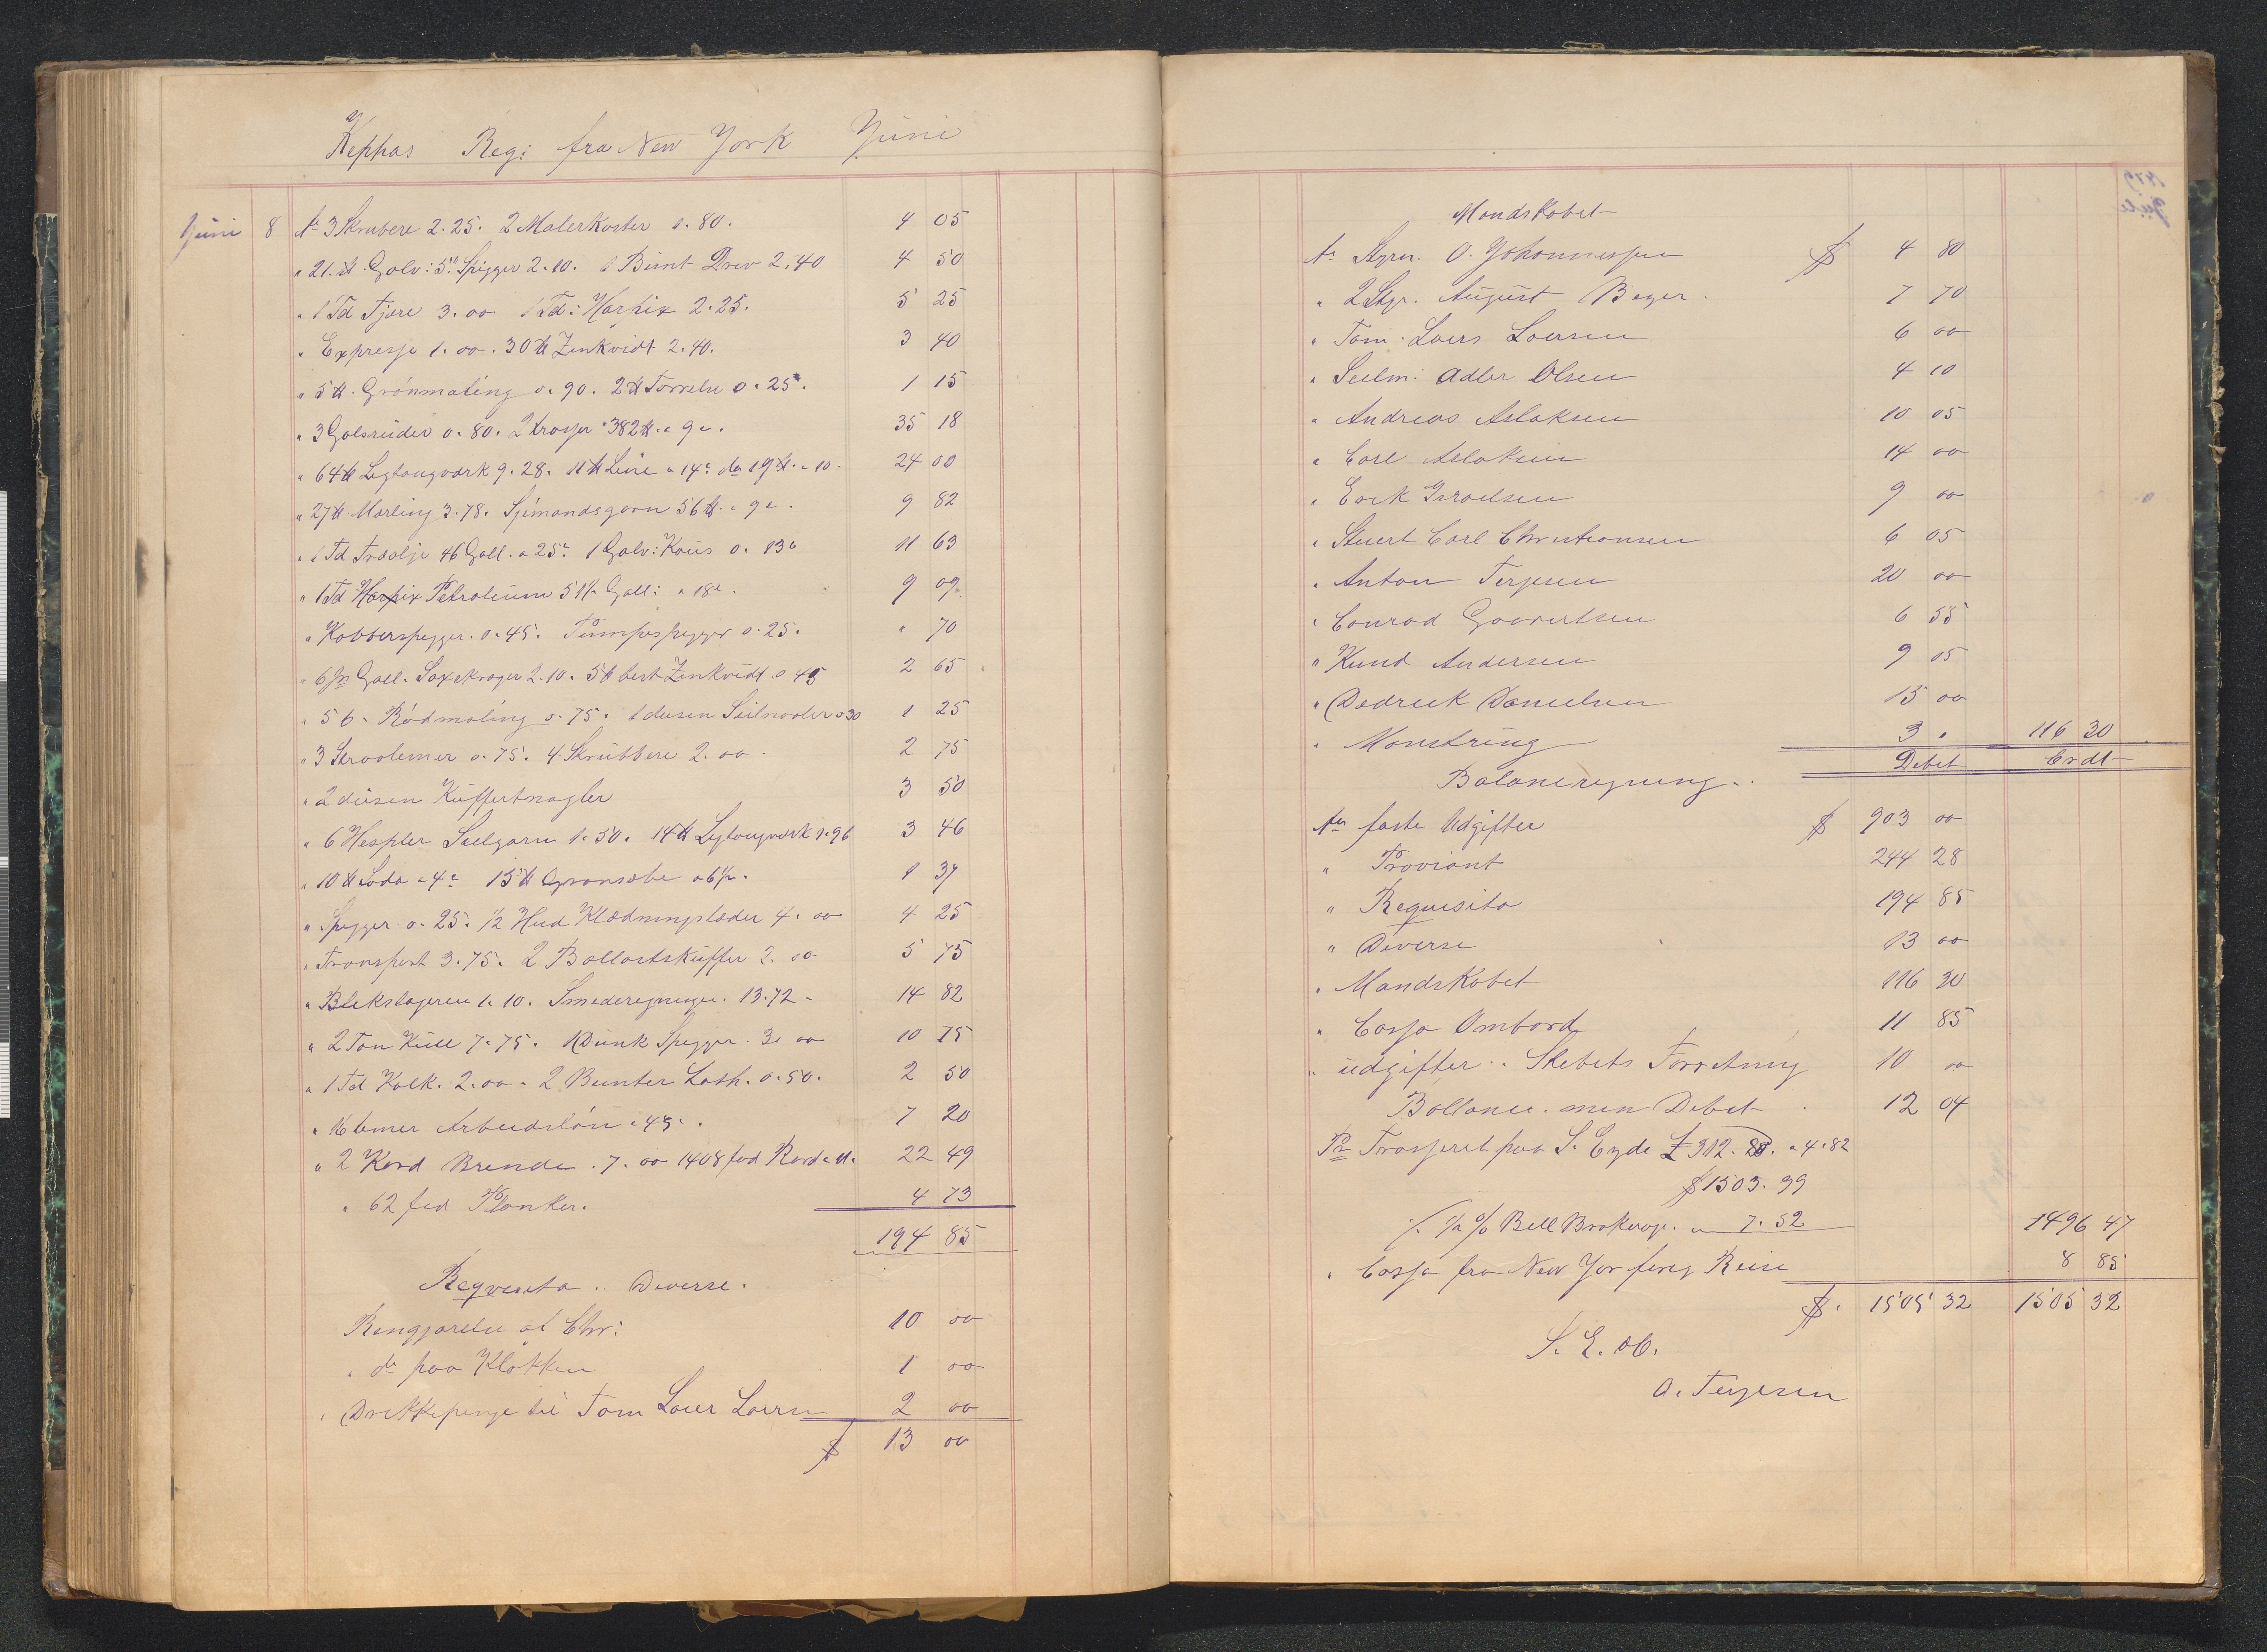 Kephas Regi fra New York Juni
Juni 8 An 3 Skrubere 2.25. 2 Malerkoster 1.80. 4 05
" 21 ℔ Galv: 5" Spigger 2.10. 1 Bunt Drev 2.40 4 50
" 1 Td Tjære 3.00 1 Td: Harpix 2.25. 5 25
" Expresse 1.00. 30 ℔ Zinkvidt 2.40. 3 40
" 5 ℔ Grönmaling 0.90. 2 ℔ Törrelse 0.25. 1 15
" 3 Galsruder 0.80. 2 Trosser 382 ℔ a 9c. 35 18
" 64 ℔ Ligtougværk 9.28. 11 ℔ Line a 14c do 19 ℔ a 10. 24 00
" 27 ℔ Merling 3.78. Sjömandsgarn 56 ℔ a 9c. 9 82
" 1 Td Traolje 46 Gall. a 25c. 1 Galv: Kous 0.13c 11 63
" 1 Td Harpix Petroleum 51½ Gall: a 18c. 9 09
" Kobberspigger. 0.45. Pumpespigger 0.25. " 70
" 6 pr Gall. Sox skroger 2.10. 5 ℔ best Zinkvidt 0.45 2 65
" 5 ℔ Rödmaling 0.75. 1 dusen Seilnaaler 0.30 1 25
" 3 0.75. 4 Skrübbere 2.00. 2 75
" 2 düsen Küffertnagler 3 50
" 6 Hespler Seilgarn 1.50. 14 ℔ Ligtougværk 1.96 3 46
" 10 ℔ Soda a 4c 15 ℔ Gronsæbe a 6½. 1 37
" Spigger 0.25. ½ Hud Klædningslæder 4.00 4 25
" Transport 3.75. 2 Ballastsküffer 2.00 5 75
" Blekslageren 1.10. Smederegninger. 13.72. 14 82
" 2 Ton Kull 7.75. 1 Dunk Spigger. 3.00 10 75
" 1 Td Kalk. 2.00. 2 Bunter Lath. 0.50. 2 50
" 16 timer Arbeidslön a 45c. 7 20
" 2 Kord Brende. 7.00 1408 fod 22 49
" 62 fod Planker. 4 73
194 85
Reqvisita. Diverse.
Rengjørelse af Chr: 10 00
" do paa Klokken 1 00
" Drikkepenge til Tom Laers Laersen 2 00
$ 13 00
Mandskabet
An Styrm. O. Johannesen $ 4 80
" 2 Styr. August Beyer. 7 70
" Tom. Laers Laersen 6 00
" Seilm: Adler Olsen 4 10
" Andreas Aslaksen 10 05
" Carl Aslaksen 14 00
" Erik Israelsen 9 00
" Stuert Carl Christiansen 6 05
" Anton Terjesen 20 00
" Conrad Govertsen 6 55
" Knud Andersen 9 05
" Dedrick Danielsen 15 00
" Mönstring 3 " 116 30
Balanseregning. Debet Credt
An faste Udgifter $ 903 00
" Proviant 244 28
" Requisita 194 85
" Diverse 13 00
" Mandskabet 116 30
" Cassa Ombord 11 85
" udgifter Skebets Forretning 10 00
Ballance. min Debet 12 04
Pr Trasseret paa S. Eyde £ 312. a 4.82
$ 1503.99
% ½ % Bill Brokerage. " 7.52 1496 47
" Cassa fra New Yor forrig Reise 8 85
$. 1505 32 1505 32
S. E. ob.
O. Terjesen